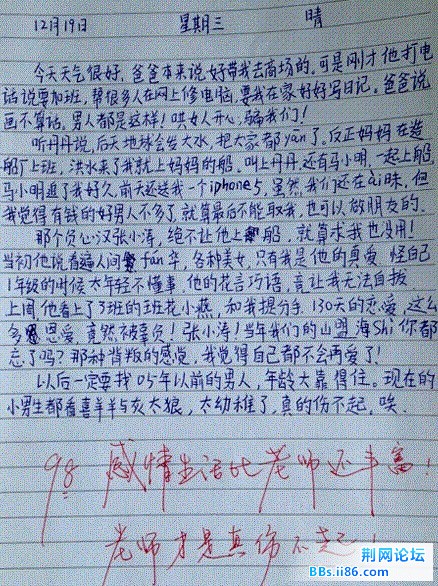 12月19日 星期三 晴
今天天气很好,爸爸本来说好带我去商场的。可是刚才他打电
话说要加班,帮很多人在网上修电脑,要我在家好好写日记。爸爸说
画不算话。男人都是这样!哄女人开心,骗我们!
听丹丹说,后天地球会发大水,把大家都yān了。反正妈妈在造
船厂上班,洪水来了我就上妈妈的船。叫上丹丹还有马小明,一起上船,
马小明追了我好久,前天还送我一个iphone5,虽然我们还在ài昧,但
我觉得有钱的好男人不多了,就算最后不能取我,也可以做朋友的。
那个负心汉张小涛,绝不让他上船,就算求我也没用!
当初他说看遍人间繁fán华,各种美女,只有我是他的真爱,怪自己
1年级的时候太年轻不懂事,他的花言巧语,竟让我无法自拔,
上周他看上了3班的班花小燕,和我提分手,130天的恋爱,这么
多恩爱,竟然被辜负!张小涛!当年我们的山盟海Shì你都
忘了吗?那种背叛的感觉,我觉得自己都不会再爱了!
以后一定要找05年以前的男人,年龄大靠得住。现在的
小男生都看喜羊羊与灰太狼,太幼稚了,真的伤不起,唉.
98 感情生活比老师还丰富!
老师才是真伤不起!
荆网论坛
BBs.ii86.com